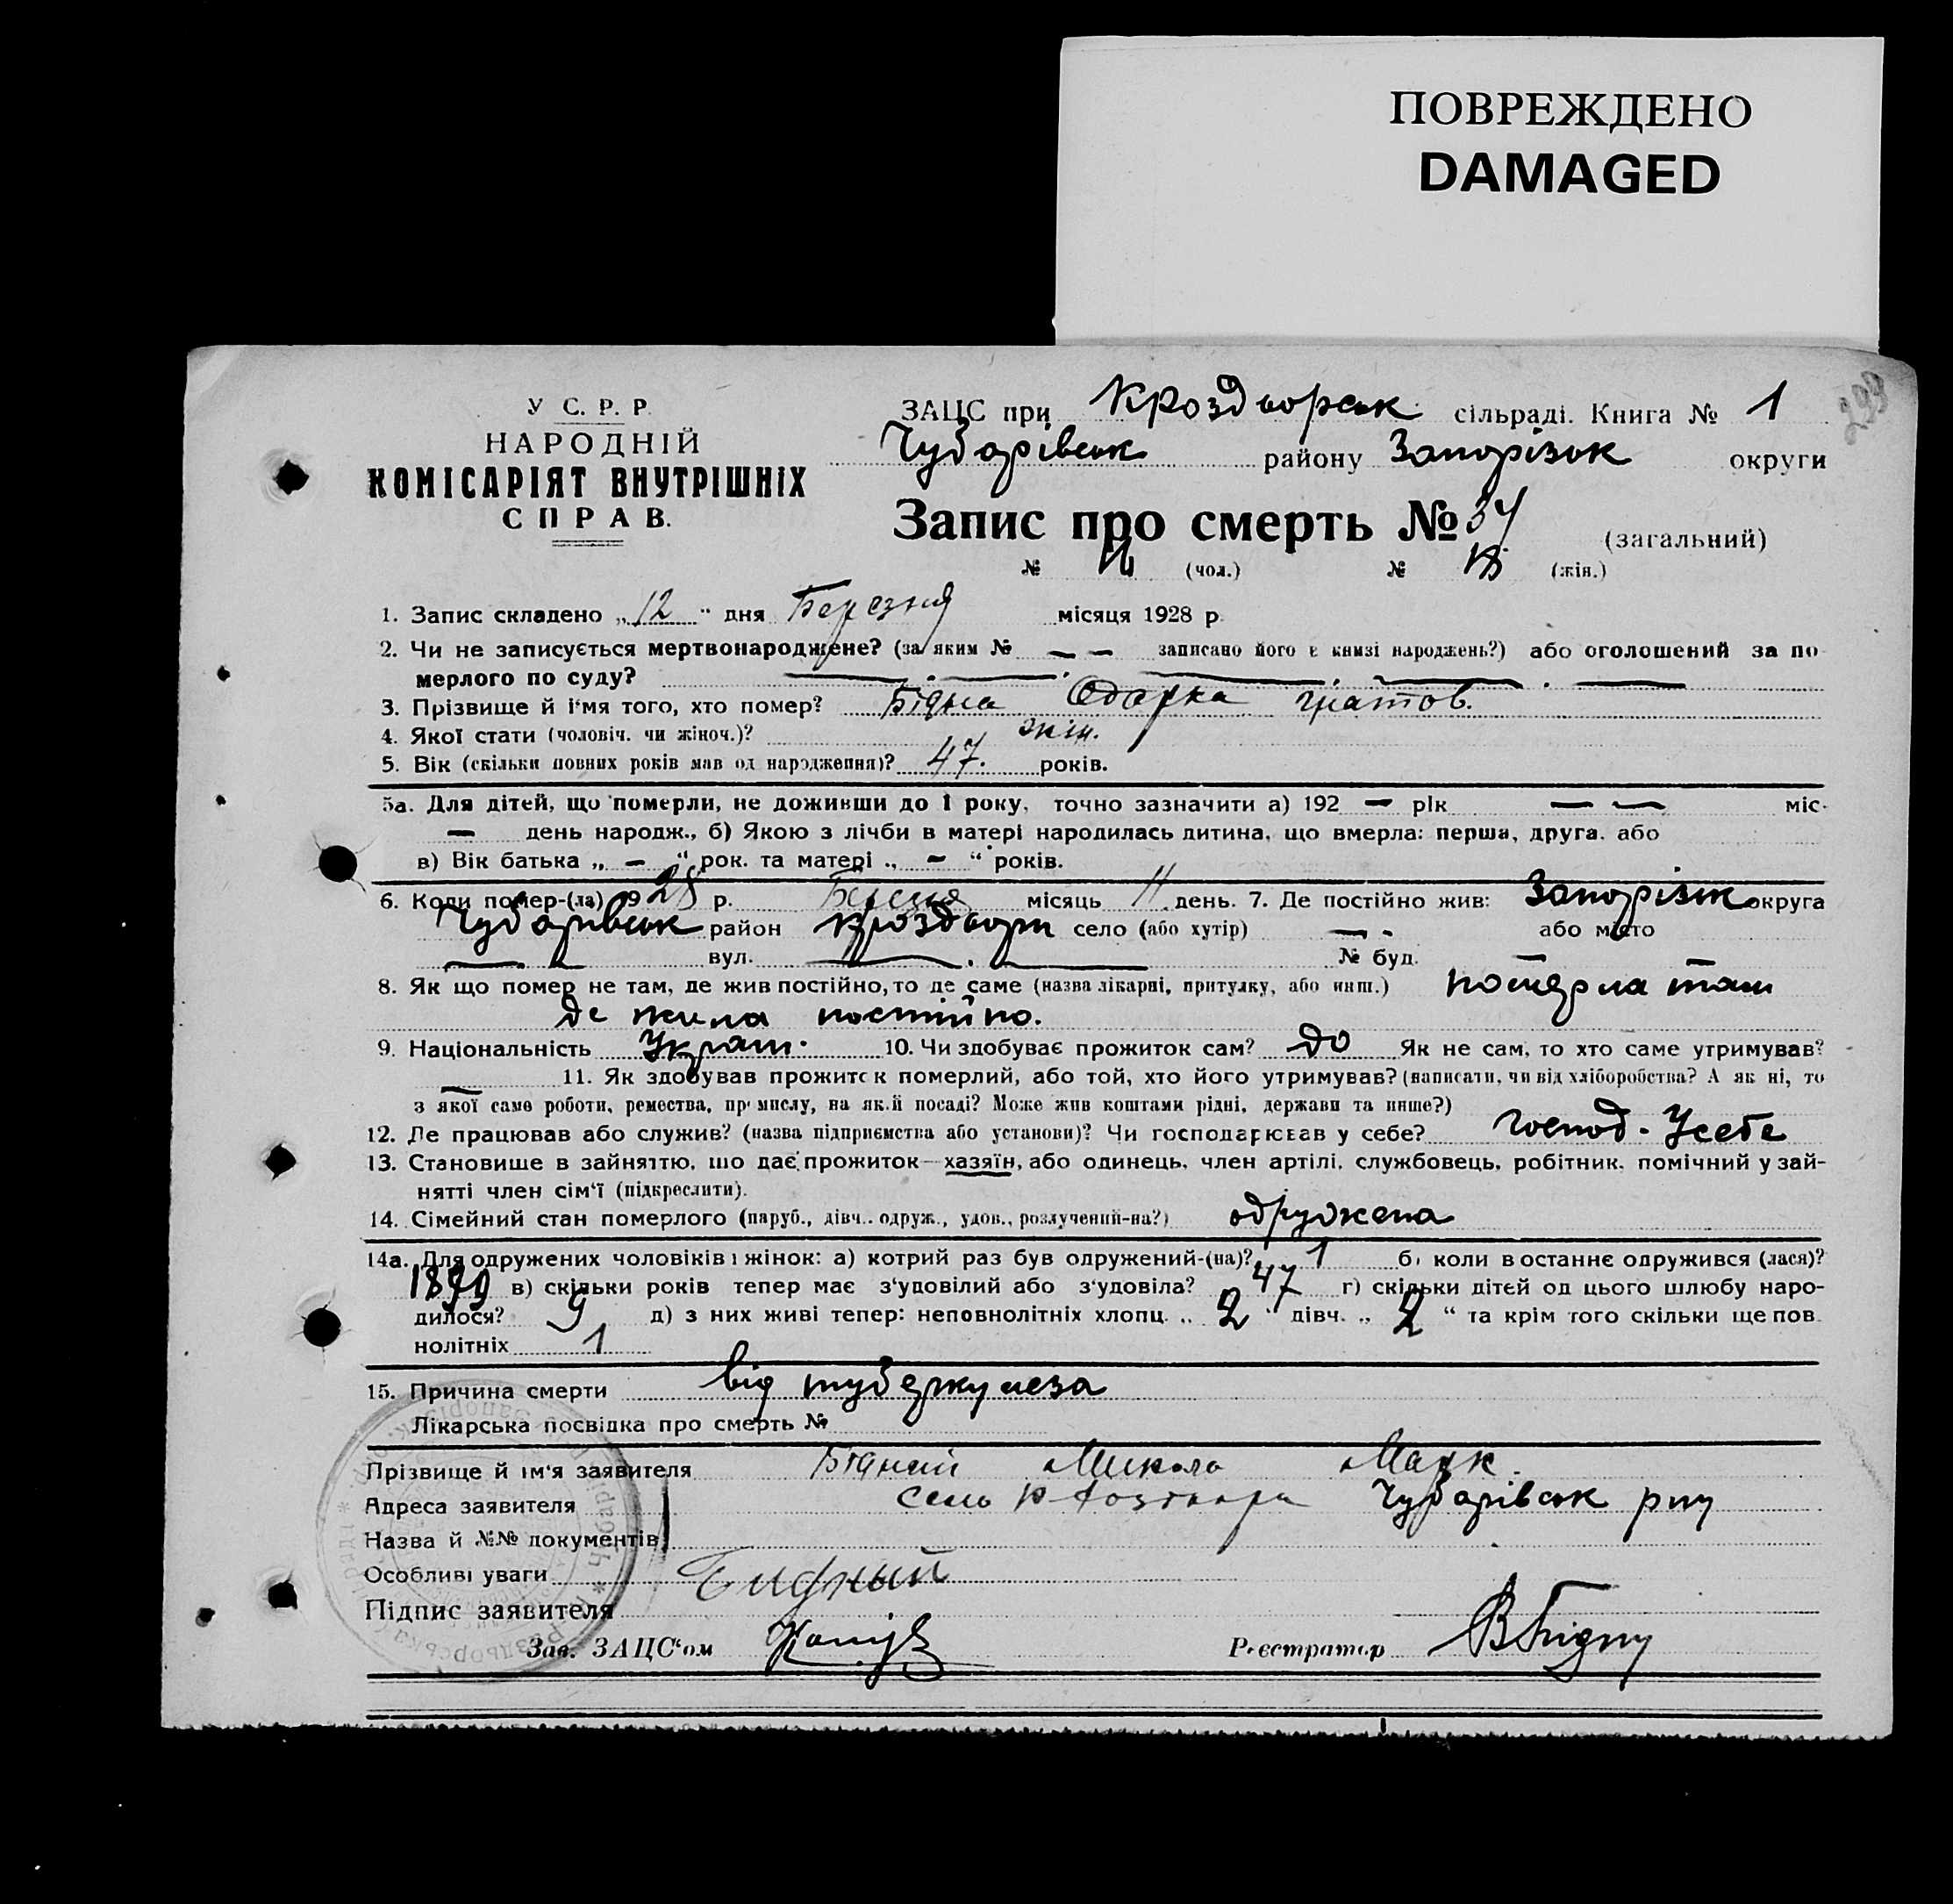 ПОВРЕЖДЕНО
DAMAGED
У С. Р. Р.
НАРОДНІЙ
КОМІСАРІЯТ ВНУТРІШНІХ
СПРАВ.
ЗАЦС при Кроздворськ сільраді. Книга № 1
Чубарівськ району Запорізьк округи
Запис про смерть № (загальний)
№ (чол.) № (жін.)
1. Запис складено „12“ дня Березня місяця 1928 р.
2. Чи не записується мертвонароджене? (за яким № — — записано його в книзі народжень?) або оголошений за по
мерлого по суду? — . — . — . — . —
3. Прізвище й і'мя того, хто помер? Бідна Одарка
4. Якої стати (чоловіч. чи жіноч.)? жін.
5. Вік (скільки повних років мав од народження)? 47. років.
5а. Для дітей, що померли, не доживши до 1 року, точно зазначити а) 192 — рік — — міс.
— день народж., б) Якою з лічби в матері народилась дитина, що вмерла: перша, друга. або
в) Вік батька „ — “ рок. та матері „ — “ років.
6. Коли помер-(ла) 1928 р. Березня місяць 11 день. 7. Де постійно жив: Запорізьк округа
Чубарівськ район Кроздори село (або хутір) — - або місто
— — вул. — . — № буд.
8. Як що помер не там, де жив постійно, то де саме (назва лікарні, притулку, або инш.) померла там
де жила постійно.
9. Національність Украін. 10. Чи здобуває прожиток сам? до Як не сам, то хто саме утримував?
— 11. Як здобував прожиток померлий, або той, хто його утримував? (написати, чи від хліборобства? А як ні, то
з якої саме роботи, ремества, промислу, на якій посаді? Може жив коштами рідні, держави та инше?)
12. Де працював або служив? (назва підприємства або установи)? Чи господарював у себе? господ. Усебе
13. Становище в зайняттю, що дає прожиток—хазяїн, або одинець, член артілі, службовець, робітник, помічний у зай-
нятті член сім'ї (підкреслити).
14. Сімейний стан померлого (паруб., дівч., одруж., удов., розлучений-на?) одружена
14а. Для одружених чоловіків і жінок: а) котрий раз був одружений-(на)? 1 б) коли востаннє одружився (лася)?
1899 в) скільки років тепер має з'удовілий або з'удовіла? 47 г) скільки дітей од цього шлюбу наро-
дилося? 9 д) з них живі тепер: неповнолітніх хлопц. „ 2 “ дівч. „ 2 “ та крім того скільки ще пов
нолітніх 1
15. Причина смерти від туберкулеза
Лікарська посвідка про смерть №
Прізвище й ім'я заявителя Бідний Микола Марк.
Адреса заявителя село Чубарівськ рну
Назва й №№ документів
Особливі уваги
Бидный
Підпис заявителя
Зав. ЗАЦС'ом Реєстратор